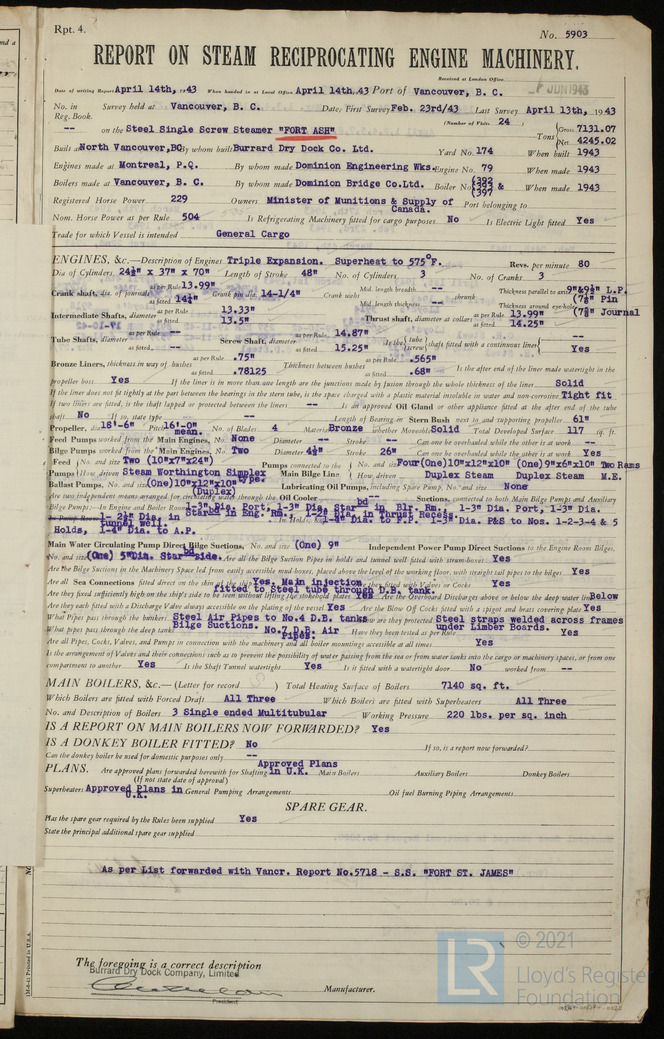 Rpt. 4.
No. 5903
REPORT ON STEAM RECIPROCATING ENGINE MACHINERY.
Received at London Office
JUN 1943
Date of writing Report April 14th, 1943 When handed in at Local Office April 14th. 43 Port of Vancouver, B. C.
No. in Reg. Book. Survey held at Vancouver, B. C. Date, First Survey Feb. 23rd/43 Last Survey April 13th, 1943
(Number of Visits 24
-- on the Steel Single Screw Steamer "FORT ASH" Tons Gross 7131.07 Net 4245.02
Built at North Vancouver, BC By whom built Burrard Dry Dock Co. Ltd. Yard No. 174 When built 1943
Engines made at Montreal, P.Q. By whom made Dominion Engineering Wks. Engine No. 79 When made 1943
Boilers made at Vancouver, B. C. By whom made Dominion Bridge Co.Ltd. Boiler No. When made 1943
Registered Horse Power 229 Owners Minister of Munitions & Supply of Canada. Port belonging to
Nom. Horse Power as per Rule 504 Is Refrigerating Machinery fitted for cargo purposes No Is Electric Light fitted Yes
Trade for which Vessel is intended General Cargo
ENGINES, &c.—Description of Engines Triple Expansion. Superheat to 575°F. Revs. per minute 80
Dia of Cylinders 24½" x 37" x 70" Length of Stroke 48" No. of Cylinders 3 No. of Cranks 3
Crank shaft, dia. of journals as per Rule 13.99" as fitted 14¼" Crank pin dia. 14-1/4" Crank webs Mid. length breadth -- Mid. length thickness -- shrunk Thickness parallel to axis 9"&9½" L.P. Thickness around eye-hole (7⅛" Pin (7⅛" Journal
Intermediate Shafts, diameter as per Rule 13.33" as fitted 13.5" Thrust shaft, diameter at collars as per Rule 13.99" as fitted 14.25"
Tube Shafts, diameter as per Rule -- as fitted -- Screw Shaft, diameter as per Rule 14.87" as fitted 15.25" Is the tube screw shaft fitted with a continuous liner -- Yes
Bronze Liners, thickness in way of bushes as per Rule .75" as fitted .78125 Thickness between bushes as per Rule .565" as fitted .68" Is the after end of the liner made watertight in the
propeller boss Yes If the liner is in more than one length are the junctions made by fusion through the whole thickness of the liner Solid
If the liner does not fit tightly at the part between the bearings in the stern tube, is the space charged with a plastic material insoluble in water and non-corrosive Tight fit
If two liners are fitted, is the shaft lapped or protected between the liners -- Is an approved Oil Gland or other appliance fitted at the after end of the tube
shaft No If so, state type -- Length of Bearing in Stern Bush next to and supporting propeller 61"
Propeller, dia. 18'-6" Pitch 16'-0" mean. No. of Blades 4 Material Bronze whether Moveable Solid Total Developed Surface 117 sq. ft.
Feed Pumps worked from the Main Engines, No. None Diameter -- Stroke -- Can one be overhauled while the other is at work --
Bilge Pumps worked from the Main Engines, No. Two Diameter 4½" Stroke 26" Can one be overhauled while the other is at work Yes
Feed Pumps No. and size Two (10"x7"x24") How driven Steam Worthington Simplex type. Pumps connected to the Main Bilge Line No. and size Four(One)10"x12"x10" (One) 9"x6"x10" Two Rams How driven Duplex Steam Duplex Steam M.E.
Ballast Pumps, No. and size (One)10"x12"x10" (Duplex) Lubricating Oil Pumps, including Spare Pump, No. and size None
Are two independent means arranged for circulating water through the Oil Cooler -- Suctions, connected to both Main Bilge Pumps and Auxiliary
Bilge Pumps:—In Engine and Boiler Room 1-3" Dia. Port, 1-3" Dia. Starbd in Blr. Rm., 1-3" Dia. Port, 1-3" Dia. Starbd in Eng. Rm., 1-2" Dia. in Thrust Recess.
In Pump Room 1- 2½" Dia. in tunnel well. In Holds, &c. 1-4" Dia. to F.P. 1-3" Dia. P&S to Nos. 1-2-3-4 & 5
Holds, 1-4" Dia. to A.P.
Main Water Circulating Pump Direct Bilge Suctions, No. and size (One) 9" Independent Power Pump Direct Suctions to the Engine Room Bilges,
No. and size (One) 5"Dia. Starbd side. Are all the Bilge Suction Pipes in holds and tunnel well fitted with strum-boxes Yes
Are the Bilge Suctions in the Machinery Space led from easily accessible mud-boxes, placed above the level of the working floor, with straight tail pipes to the bilges Yes
Are all Sea Connections fitted direct on the skin of the ship Yes. Main injection fitted to Steel tube through D.B. tank. Are they fitted with Valves or Cocks Yes
Are they fixed sufficiently high on the ship's side to be seen without lifting the stokehold plates Yes Are the Overboard Discharges above or below the deep water line Below
Are they each fitted with a Discharge Valve always accessible on the plating of the vessel Yes Are the Blow Off Cocks fitted with a spigot and brass covering plate Yes
What Pipes pass through the bunkers Steel Air Pipes to No.4 D.B. tanks How are they protected Steel straps welded across frames
What pipes pass through the deep tanks Bilge Suctions. No.7 D.B. Air Pipes. under Limber Boards. Have they been tested as per Rule Yes
Are all Pipes, Cocks, Valves, and Pumps in connection with the machinery and all boiler mountings accessible at all times Yes
Is the arrangement of Valves and their connections such as to prevent the possibility of water passing from the sea or from water tanks into the cargo or machinery spaces, or from one
compartment to another Yes Is the Shaft Tunnel watertight Yes Is it fitted with a watertight door No worked from --
MAIN BOILERS, &c.—(Letter for record S) Total Heating Surface of Boilers 7140 sq. ft.
Which Boilers are fitted with Forced Draft All Three Which Boilers are fitted with Superheaters All Three
No. and Description of Boilers 3 Single ended Multitubular Working Pressure 220 lbs. per sq. inch
IS A REPORT ON MAIN BOILERS NOW FORWARDED? Yes
IS A DONKEY BOILER FITTED? No If so, is a report now forwarded?
Can the donkey boiler be used for domestic purposes only --
PLANS. Are approved plans forwarded herewith for Shafting Approved Plans in U.K. Main Boilers Auxiliary Boilers Donkey Boilers
(If not state date of approval)
Superheaters Approved Plans in U.K. General Pumping Arrangements Oil fuel Burning Piping Arrangements
SPARE GEAR.
Has the spare gear required by the Rules been supplied Yes
State the principal additional spare gear supplied
As per List forwarded with Vancr. Report No.5718 - S.S. "FORT ST. JAMES"
The foregoing is a correct description
Burrard Dry Dock Company, Limited
President
Manufacturer.
© 2021
Lloyd's Register
Foundation